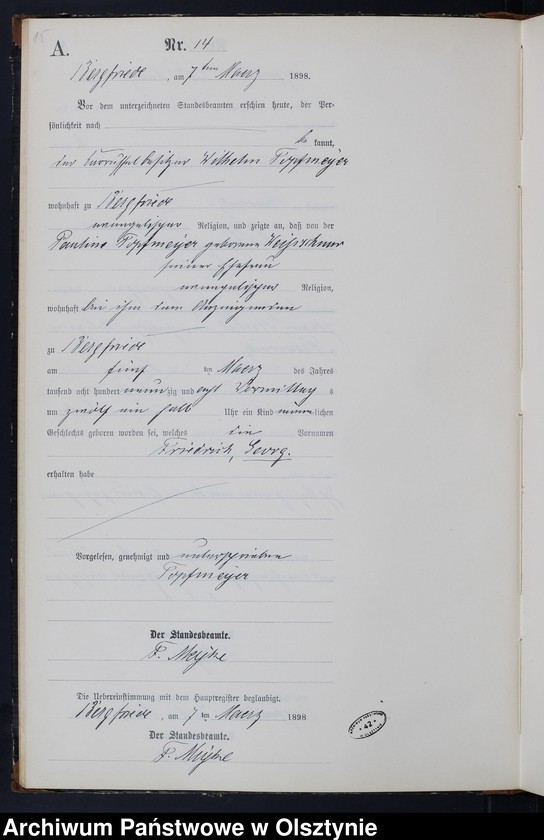 15
A.
Nr. 14
Bergfriede, am 7ten Maerz 1898.
Vor dem unterzeichneten Standesbeamten erschien heute, der Per-
sönlichkeit nach
be kannt,
der Wilhelm Topfmeyer
wohnhaft zu Bergfriede
evangelischer Religion, und zeigte an, daß von der
Pauline Topfmeyer geborene
seiner Ehefrau
evangelischer Religion,
wohnhaft bei ihm dem Anzeigenden
zu Bergfriede
am fünf ten Maerz des Jahres
tausend acht hundert neunzig und acht Vormittag s
um zwölf ein halb Uhr ein Kind männlichen
Geschlechts geboren worden sei, welches die Vornamen
Friedrich, Georg.
erhalten habe
Vorgelesen, genehmigt und unterschrieben
Topfmeyer
Der Standesbeamte.
F.
Die Uebereinstimmung mit dem Hauptregister beglaubigt.
Bergfriede, am 7 ten Maerz 1898
Der Standesbeamte.
F.
42
Archiwum Państwowe w Olsztynie